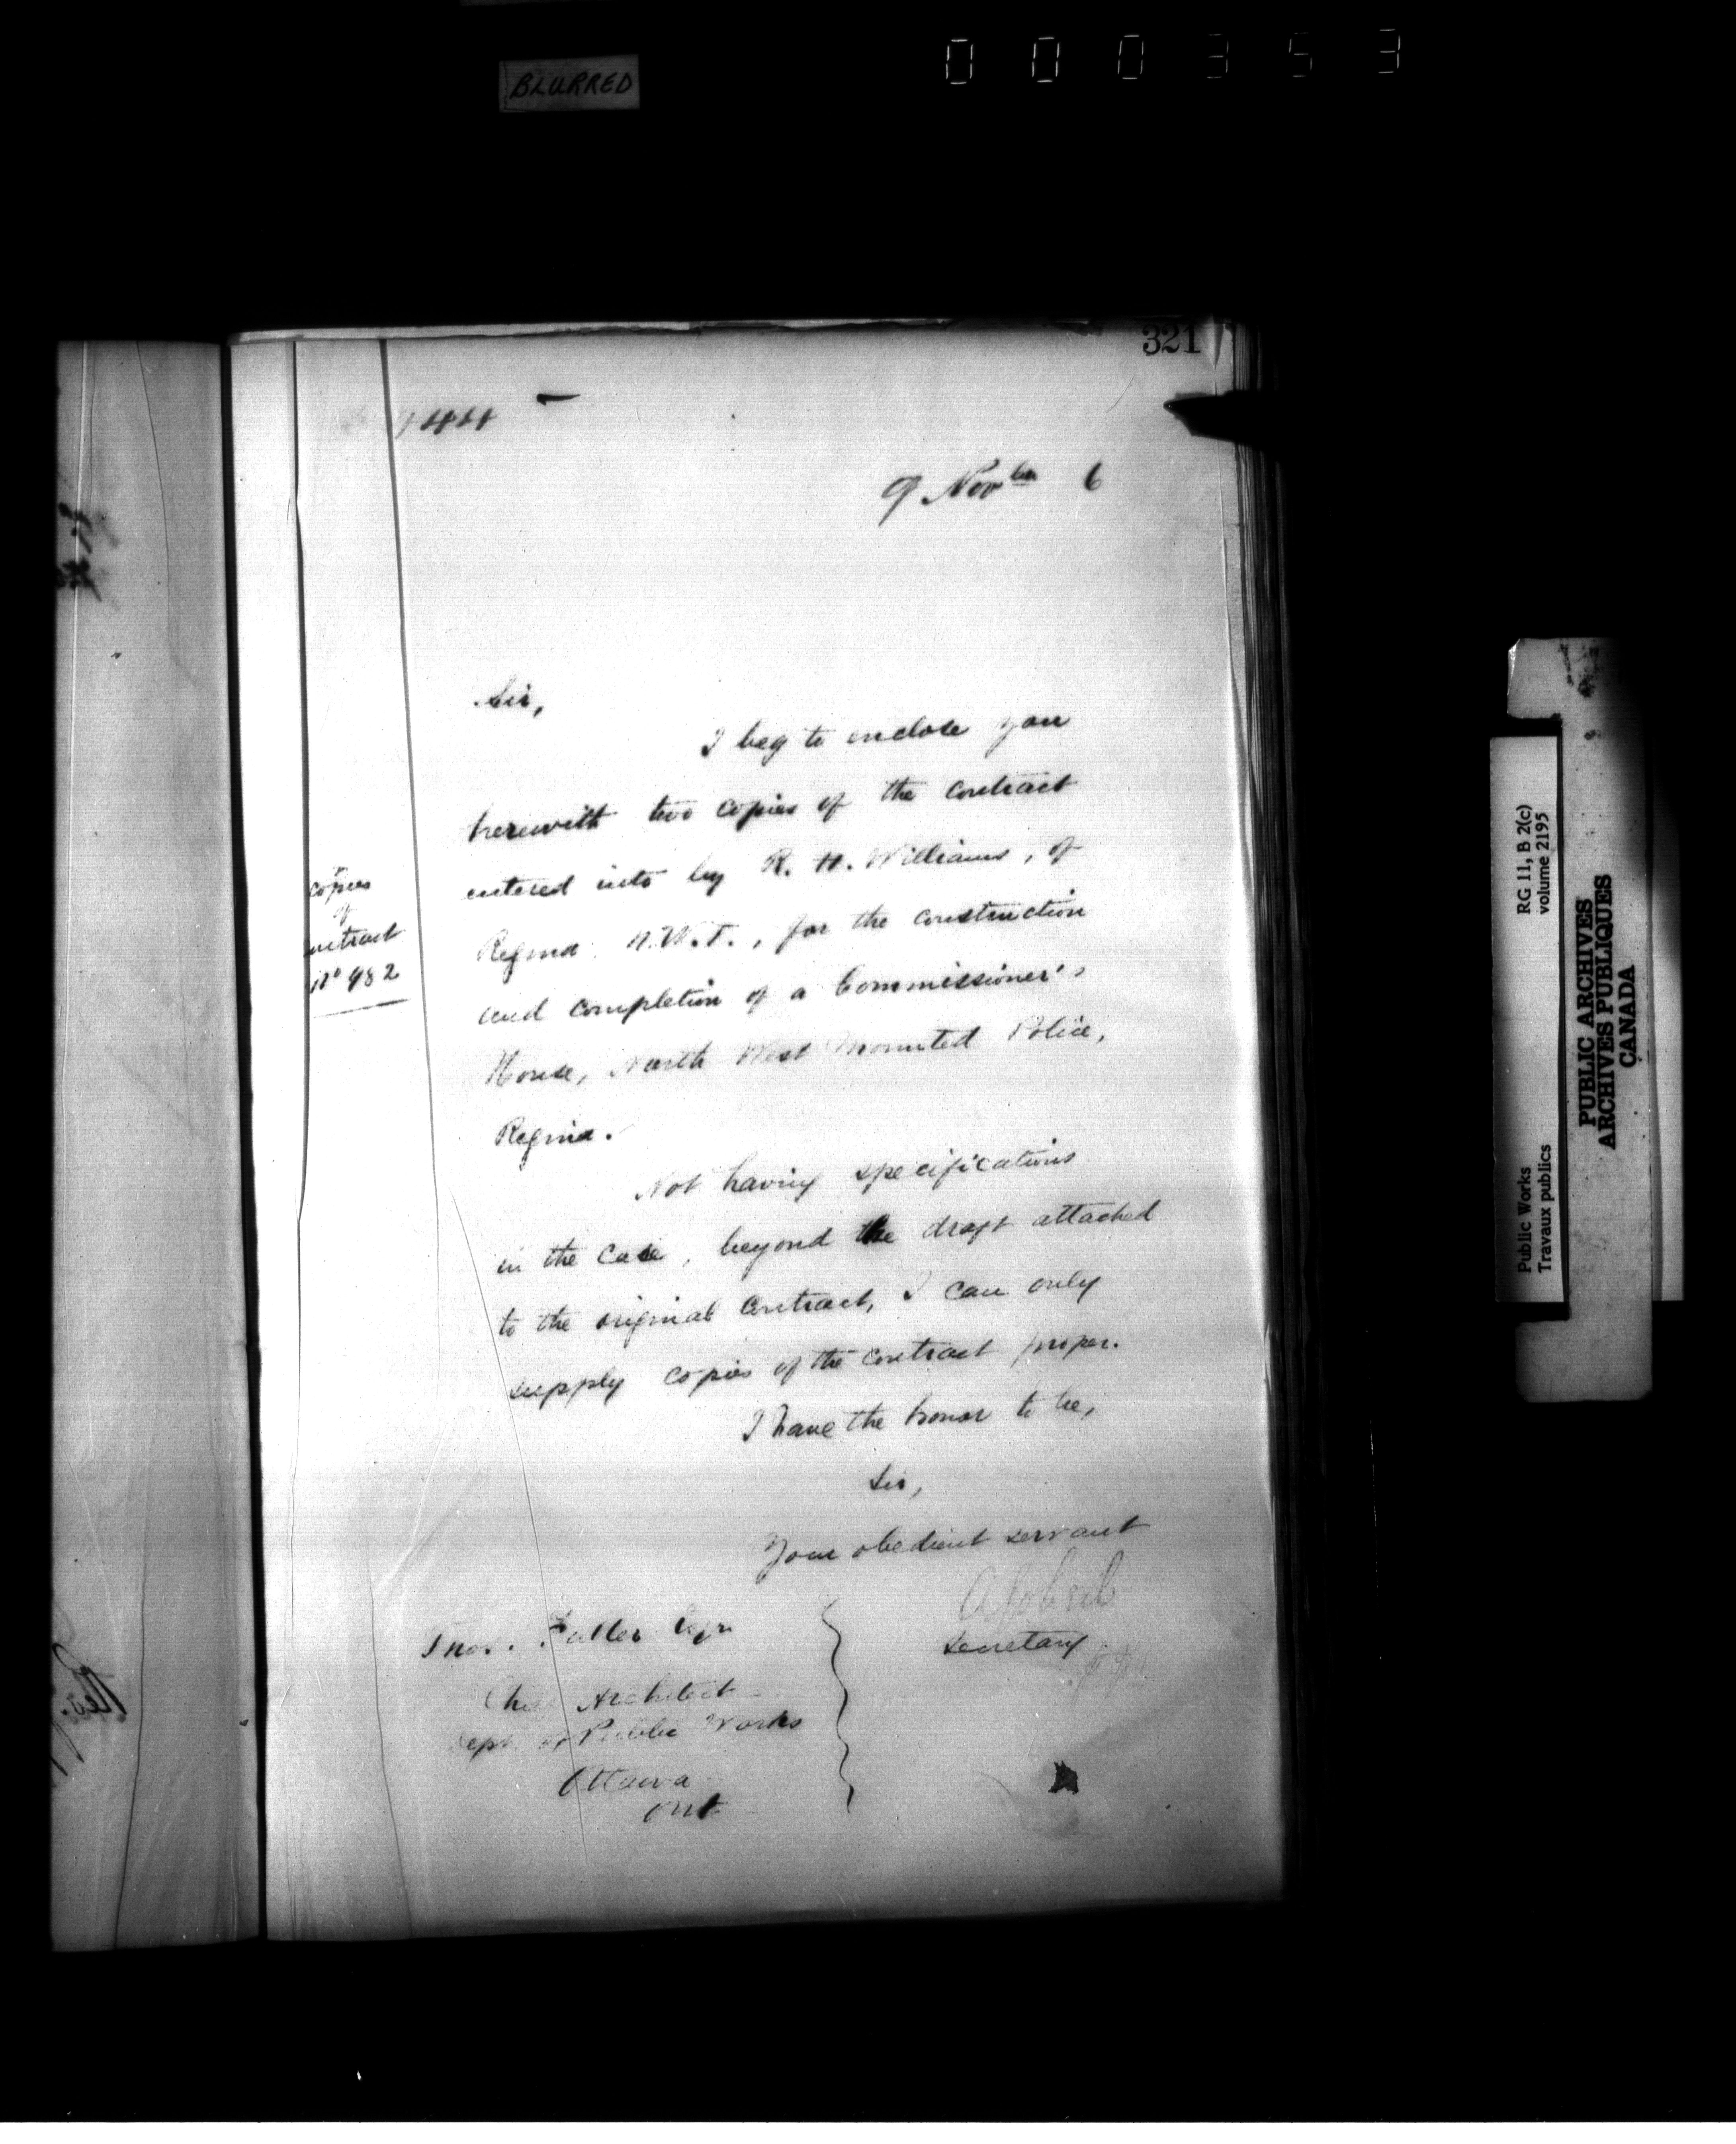 BLURRED
000353
321
9 Novber 6
Sir,
I beg to enclose you
herewith two copies of the contract
entered into by R. H. Williams, of
Regina N.W.T., for the construction
and completion of a Commissioner's
House, North West Mounted Police,
Regina.
copies
of
contract
No 982
Not having specifications
in the case, beyond the draft attached
to the original contract, I can only
supply copies of the contract proper.
I have the honor to be,
Sir,
Your obedient servant
A Gobeil
Secretary
Thos. Fuller Esqr.
Chief Architect
Dept of Public Works
Ottawa
Ont
RG 11, B 2(c)
volume 2195
Public Works
Travaux publics
PUBLIC ARCHIVES
ARCHIVES PUBLIQUES
CANADA